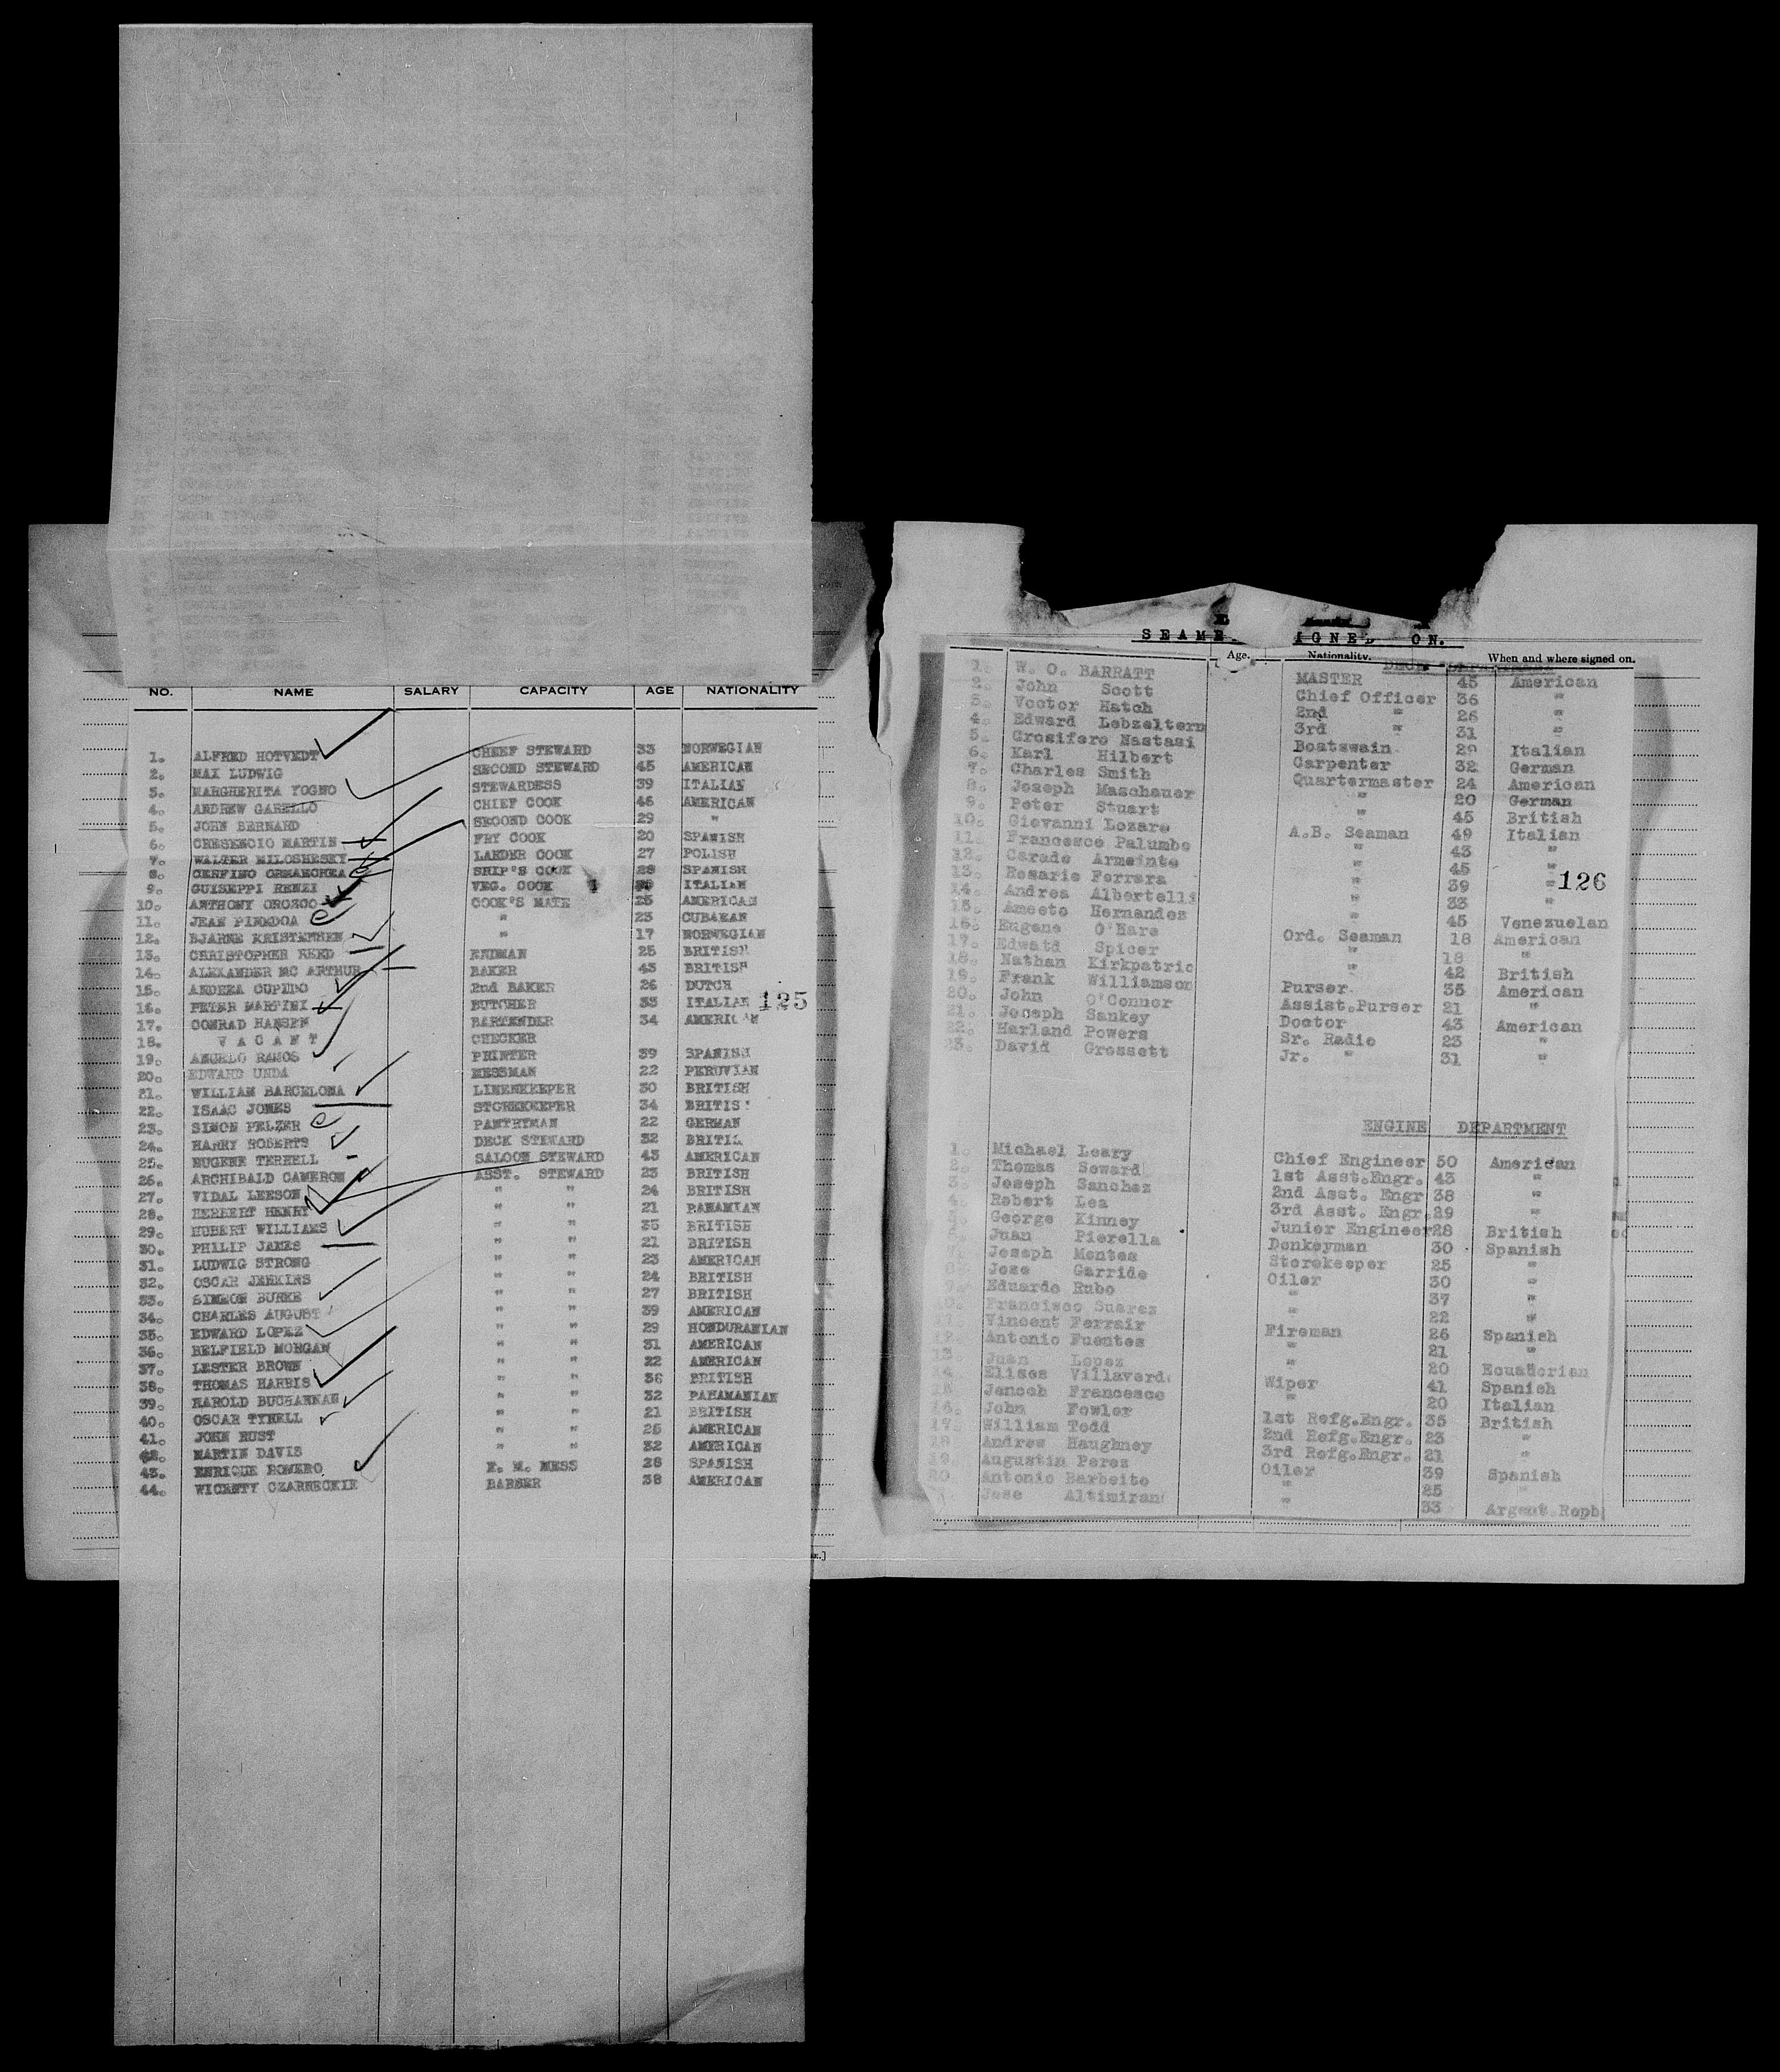 NO. NAME SALARY CAPACITY AGE NATIONALITY
1. ALFRED HOTVEDT CHIEF STEWARD 33 NORWEGIAN
2. MAX LUDWIG SECOND STEWARD 45 AMERICAN
3. MARGHERITA YOGNO STEWARDESS 39 ITALIAN
4. ANDREW GARELLO CHIEF COOK 46 AMERICAN
5. JOHN BERNARD SECOND COOK 29 "
6. CRESENCIO MARTIN FRY COOK 20 SPANISH
7. WALTER MILOSHESKY LARDER COOK 27 POLISH
8. CERFINO ORMAECHEA SHIP'S COOK 28 SPANISH
9. GUISEPPI RENZI VEG. COOK ITALIAN
10. ANTHONY OROZCO COOK'S MATE 25 AMERICAN
11. JEAN PINEDOA " 23 CUBAEAN
12. BJARNE KRISTENSEN " 17 NORWEGIAN
13. CHRISTOPHER REED ENDMAN 25 BRITISH
14. ALEXANDER MC ARTHUR BAKER 43 BRITISH
15. ANDREA CUPEDO 2nd BAKER 26 DUTCH
16. PETER MARTINI BUTCHER 33 ITALIAN 125
17. CONRAD HANSEN BARTENDER 34 AMERICAN
18. V A C A N T CHECKER
19. ANGELO RAMOS PRINTER 39 SPANISH
20. EDWARD UNDA MESSMAN 22 PERUVIAN
21. WILLIAM BARCELONA LINENKEEPER 30 BRITISH
22. ISAAC JONES STOREKEEPER 34 BRITIS
23. SIMON PELZER PANTRYMAN 22 GERMAN
24. HARRY ROBERTS DECK STEWARD 32 BRITI
25. EUGENE TERRELL SALOON STEWARD 43 AMERICAN
26. ARCHIBALD CAMERON ASST. STEWARD 23 BRITISH
27. VIDAL LEESON " " 24 BRITISH
28. HERBERT HENRY " " 21 PANAMIAN
29. HUBERT WILLIAMS " " 35 BRITISH
30. PHILIP JAMES " " 21 BRITISH
31. LUDWIG STRONG " " 23 AMERICAN
32. OSCAR JENKINS " " 24 BRITISH
33. SIMEON BURKE " " 27 BRITISH
34. CHARLES AUGUST " " 39 AMERICAN
35. EDWARD LOPEZ " " 29 HONDURANIAN
36. BELFIELD MORGAN " " 31 AMERICAN
37. LESTER BROWN " " 22 AMERICAN
38. THOMAS HARRIS " " 36 BRITISH
39. HAROLD BUCHANNAN " " 32 PANAMANIAN
40. OSCAR TYRELL " " 21 BRITISH
41. JOHN RUST " " 25 AMERICAN
42. MARTIN DAVIS " " 32 AMERICAN
43. ENRIQUE ROMERO E. M. MESS 28 SPANISH
44. WICENTY CZARNECKIE BARBER 38 AMERICAN
SEAME IGNED ON.
Age. Nationality. When and where signed on.
1. W. O. BARRATT MASTER 45 American
2. John Scott Chief Officer 36 "
3. Voctor Hatch 2nd " 26 "
4. Edward Lebzeltern 3rd " 31 "
5. Crosifero Nastasi Boatswain 29 Italian
6. Karl Hilbert Carpenter 32 German
7. Charles Smith Quartermaster 24 American
8. Joseph Maschauer " 20 German
9. Peter Stuart " 45 British
10. Giovanni Lozaro A.B. Seaman 49 Italian
11. Francesco Palumbo " 43 "
12. Carado Armeinto " 45 "
13. Rosario Ferrara " 39 " 126
14. Andrea Albertelli " 33 "
15. Ameeto Hernandez " 45 Venezuelan
16. Eugene O'Hare Ord. Seaman 18 American
17. Edwatd Spicer " 18 "
18. Nathan Kirkpatric " 42 British
19. Frank Williamson Purser 35 American
20. John O'Connor Assist.Purser 21 "
21. Joseph Sankey Doctor 43 American
22. Harland Powers Sr. Radio 23 "
23. David Grossett Jr. " 31 "
ENGINE DEPARTMENT
1. Michael Leary Chief Engineer 50 American
2. Thomas Seward 1st Asst.Engr. 43 "
3. Joseph Sanchez 2nd Asst. Engr 38 "
4. Robert Lea 3rd Asst. Engr. 29 "
George Kinney Junior Engineer 28 British
Juan Pierella Donkeyman 30 Spanish
Joseph Montes Storekeeper 25 "
Jose Garrido Oiler 30 "
Eduardo Rubo " 37 "
Francisco Suarez " 22 "
Vincent Ferrair Fireman 26 Spanish
Antonio Fuentes " 21 "
Juan Lopez " 20 Ecuadorian
14 Elises Villaverd Wiper 41 Spanish
Janoch Francesco " 20 Italian
16. John Fowler 1st Refg.Engr. 35 British
17. William Todd 2nd Refg.Engr. 23 "
18. Andrew Haughney 3rd Refg.Engr. 21 "
19. Augustin Perez Oiler 39 Spanish
20. Antonio Barbeito " 25 "
Jose Altimiran " 33 Argent.Repb